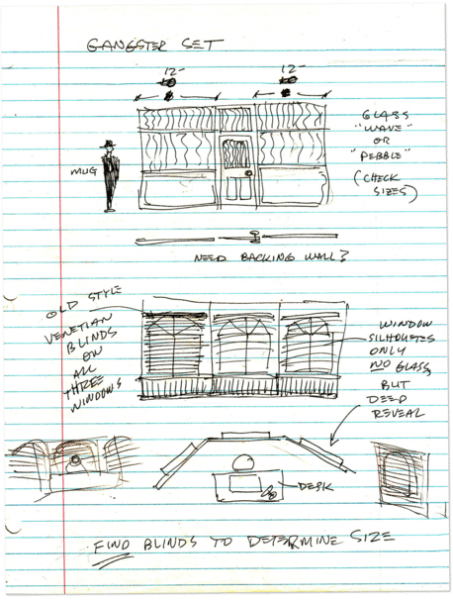 GANGSTER SET
12'
12'
GLASS
"WAVE"
OR
"PEBBLE"
(CHECK
SIZES)
MUG
NEED BACKING WALL?
OLD STYLE
VENETIAN
BLINDS
ON
ALL
THREE
WINDOWS
WINDOW
SILHOUETES
ONLY
NO GLASS
BUT
DEEP
REVEAL
DESK
FIND BLINDS TO DETERMINE SIZE